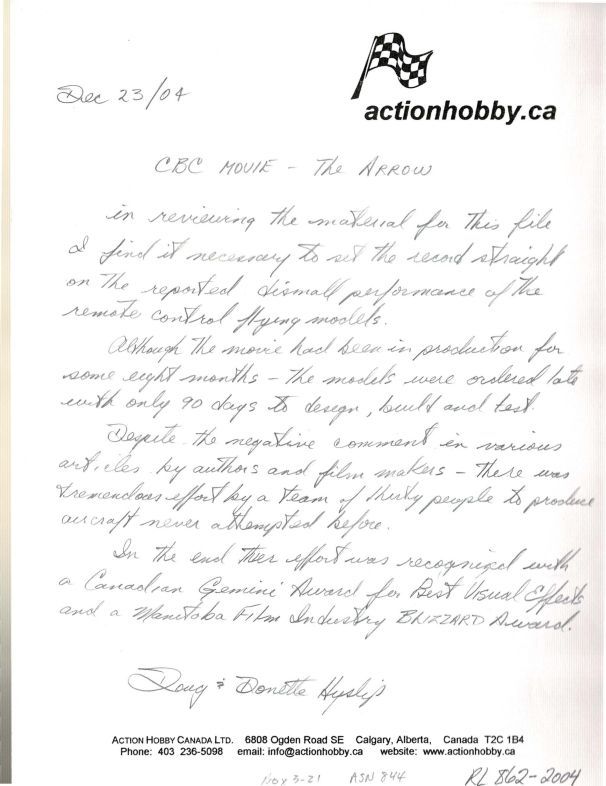 Dec 23/04
actionhobby.ca
CBC MOVIE - The ARROW
in reviewing the material for this file
I find it necessary to set the record straight
on the reported dismall performance of the
remote control flying models.
Although the movie had been in production for
some eight months - the models were ordered late
with only 90 days to design, built and test.
Despite the negative comment in various
articles by authors and film makers - there was
tremendous effort by a team of thirty people to produce
aircraft never attempted before.
In the end their effort was recognized with
a Canadian Gemini Award for Best Visual Effects
and a Manitoba Film Industry BLIZZARD Award.
Doug & Donette Hyslip
ACTION HOBBY CANADA LTD. 6808 Ogden Road SE Calgary, Alberta, Canada T2C 1B4
Phone: 403 236-5098 email: info@actionhobby.ca website: www.actionhobby.ca
3-21 ASN 844 RL 862-2004